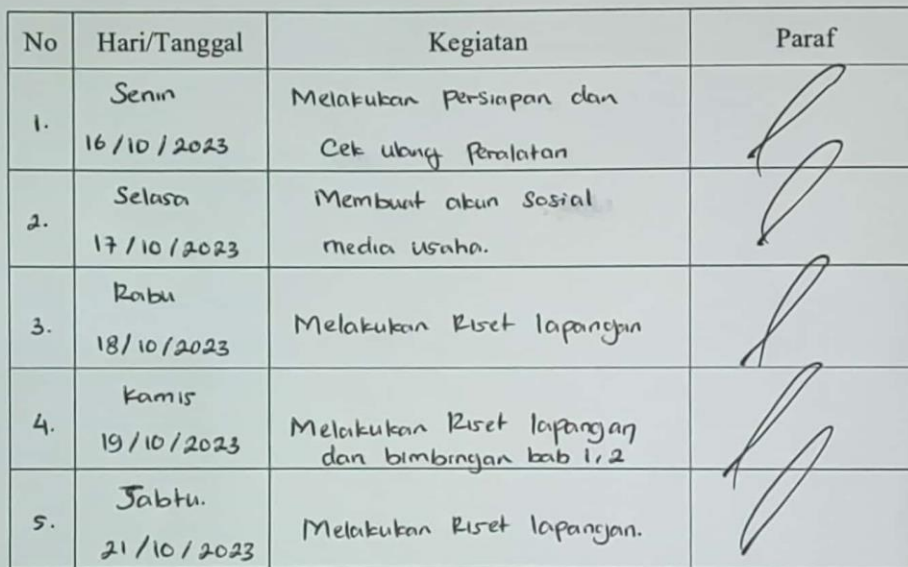 No Hari/Tanggal Kegiatan Paraf
1. Senin
16/10/2023
Melakukan Persiapan dan
Cek ulang Peralatan
2. Selasa
17/10/2023
Membuat akun Sosial
media usaha.
3. Rabu
18/10/2023
Melakukan Riset lapangan
4. Kamis
19/10/2023
Melakukan Riset lapangan
dan bimbingan bab 1,2
5. Sabtu.
21/10/2023
Melakukan Riset lapangan.